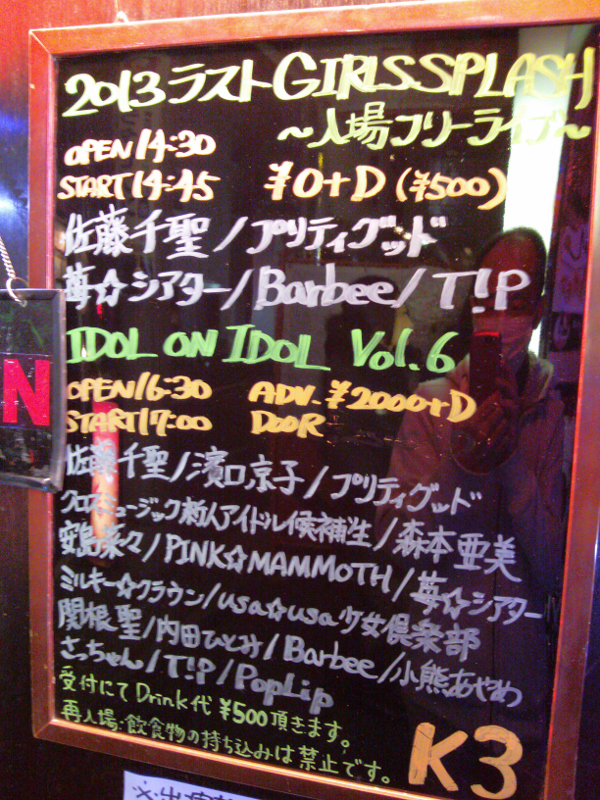 2013ラスト GIRLSSPLASH
～入場フリーライブ～
OPEN/14:30
START/14:45 ¥0+D (¥500)
佐藤千聖/プリティグッド
苺☆シアター/Barbee/T!P
IDOL ON IDOL Vol.6
OPEN/16:30 ADV. ¥2000+D
START/17:00 DOOR
佐藤千聖/濱口京子/プリティグッド
クロスミュージック新人アイドル候補生/森本亜美
安島菜々/PINK☆MAMMOTH/苺☆シアター
ミルキー☆クラウン/usa☆usa少女倶楽部
関根聖/内田ひとみ/Barbee/小熊あやめ
さっちゃん/T!P/PopLip
受付にてDrink代 ¥500頂きます。
再入場・飲食物の持ち込みは禁止です。
K3
N